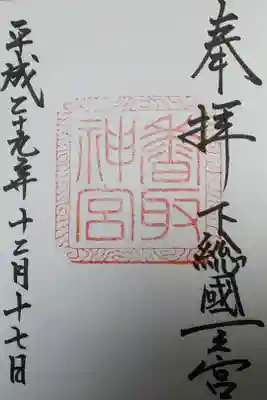 奉拝下総國一之宮
香取神宮
平成二十九年十二月十七日